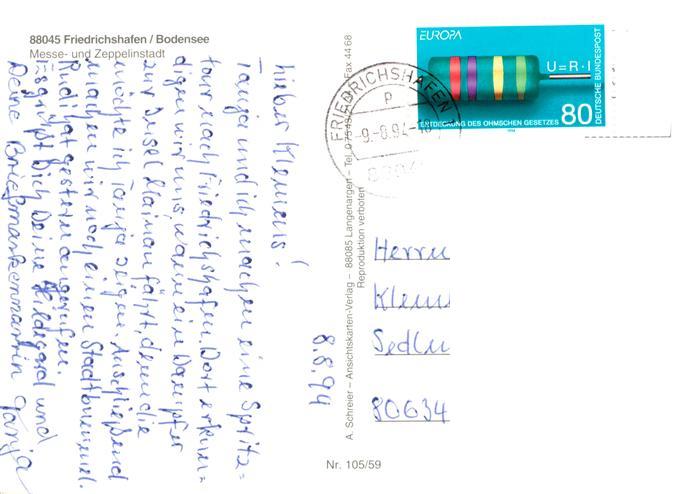 88045 Friedrichshafen / Bodensee
Messe- und Zeppelinstadt
8.8.94
Lieber Klemens!
Tanja und ich machen eine Spritz=
tour nach Friedrichshafen. Dort erkun=
digen wir uns, wann ein Dampfer
zur Insel Mainau fährt, denn die
möchte ich Tanja zeigen. Anschließend
machen wir noch einen Stadtbummel.
Rudi hat gestern angerufen.
Es grüßt Dich Deine Hildegard und
Deine Briefmarkenmartin Tanja
A. Schreier – Ansichtskarten-Verlag – 88085 Langenargen – Tel. 0 75 43 Fax 44 68
Reproduktion verboten
Nr. 105/59
EUROPA
U=R·I
80
DEUTSCHE BUNDESPOST
ENTDECKUNG DES OHMSCHEN GESETZES
1994
FRIEDRICHSHAFEN
p
-9.-8.94-18
Herrn
Klems
Sedlu
80634